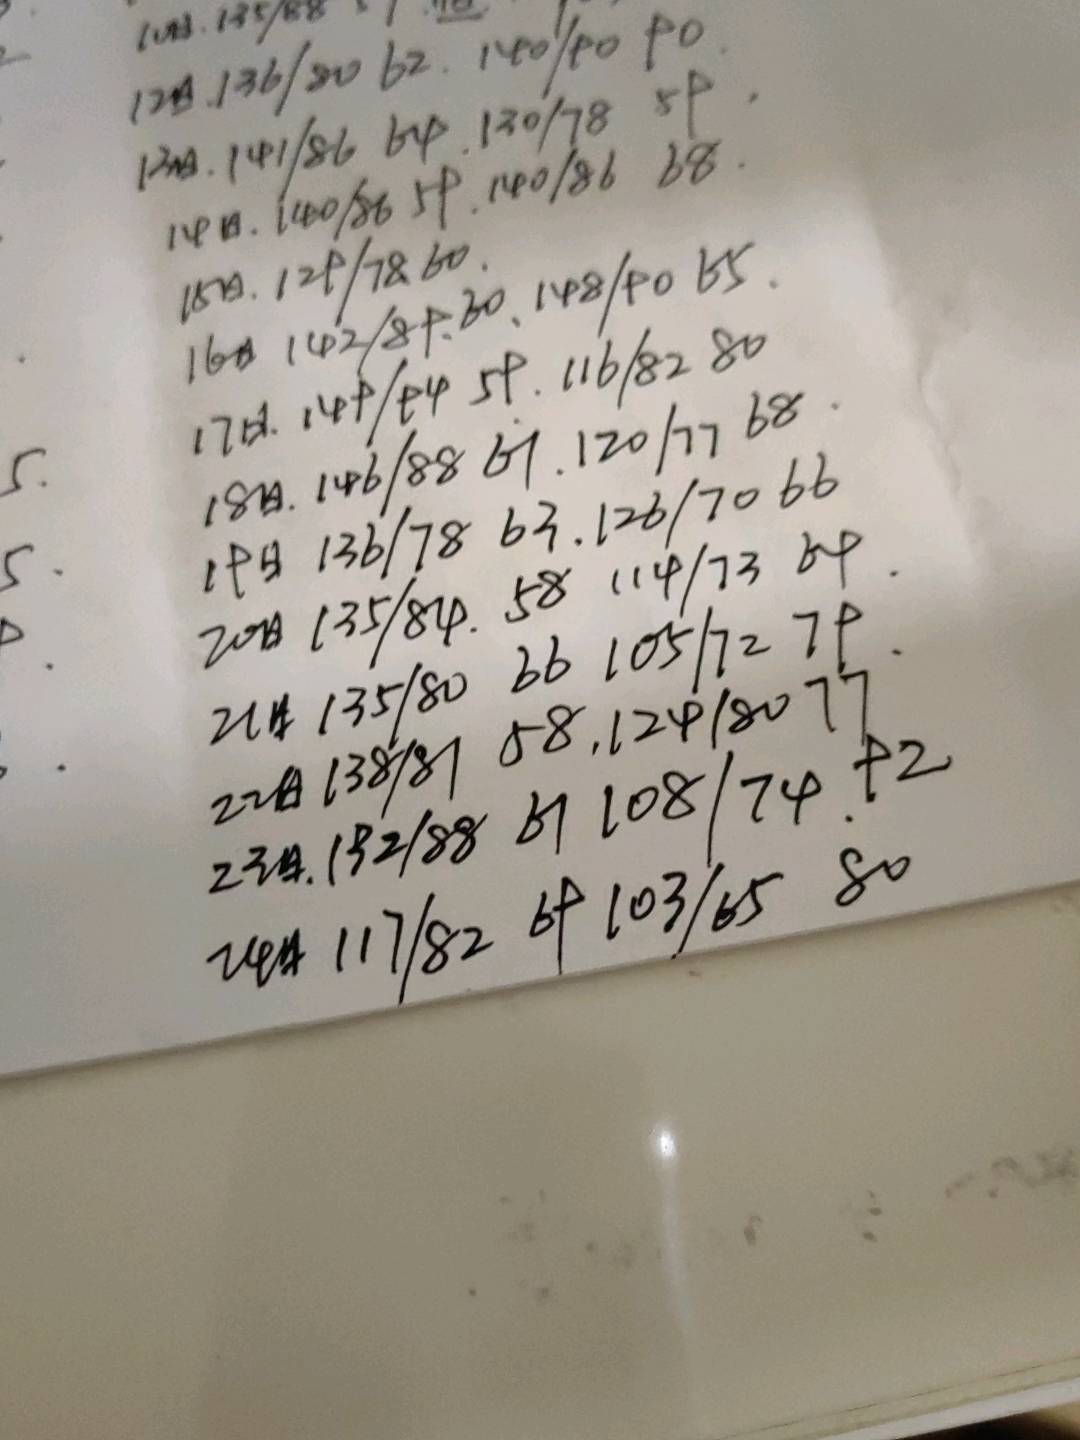 10日.135/88
12日.136/80 62. 140/90 90.
13日.141/86 64.130/78 59.
14日.140/86 59.140/86 68.
15日.129/78 60.
16日 142/89.60、148/90 65.
17日.149/94 59.116/82 80
18日.146/88 61.120/77 68.
19日 136/78 63.126/70 66
20日 135/84. 58 114/73 69.
21日 135/80 66 105/72 79.
22日 138/81 58.124/80 77
23日.132/88 61 108/74.92
24日 117/82 69 103/65 80
5.
5.